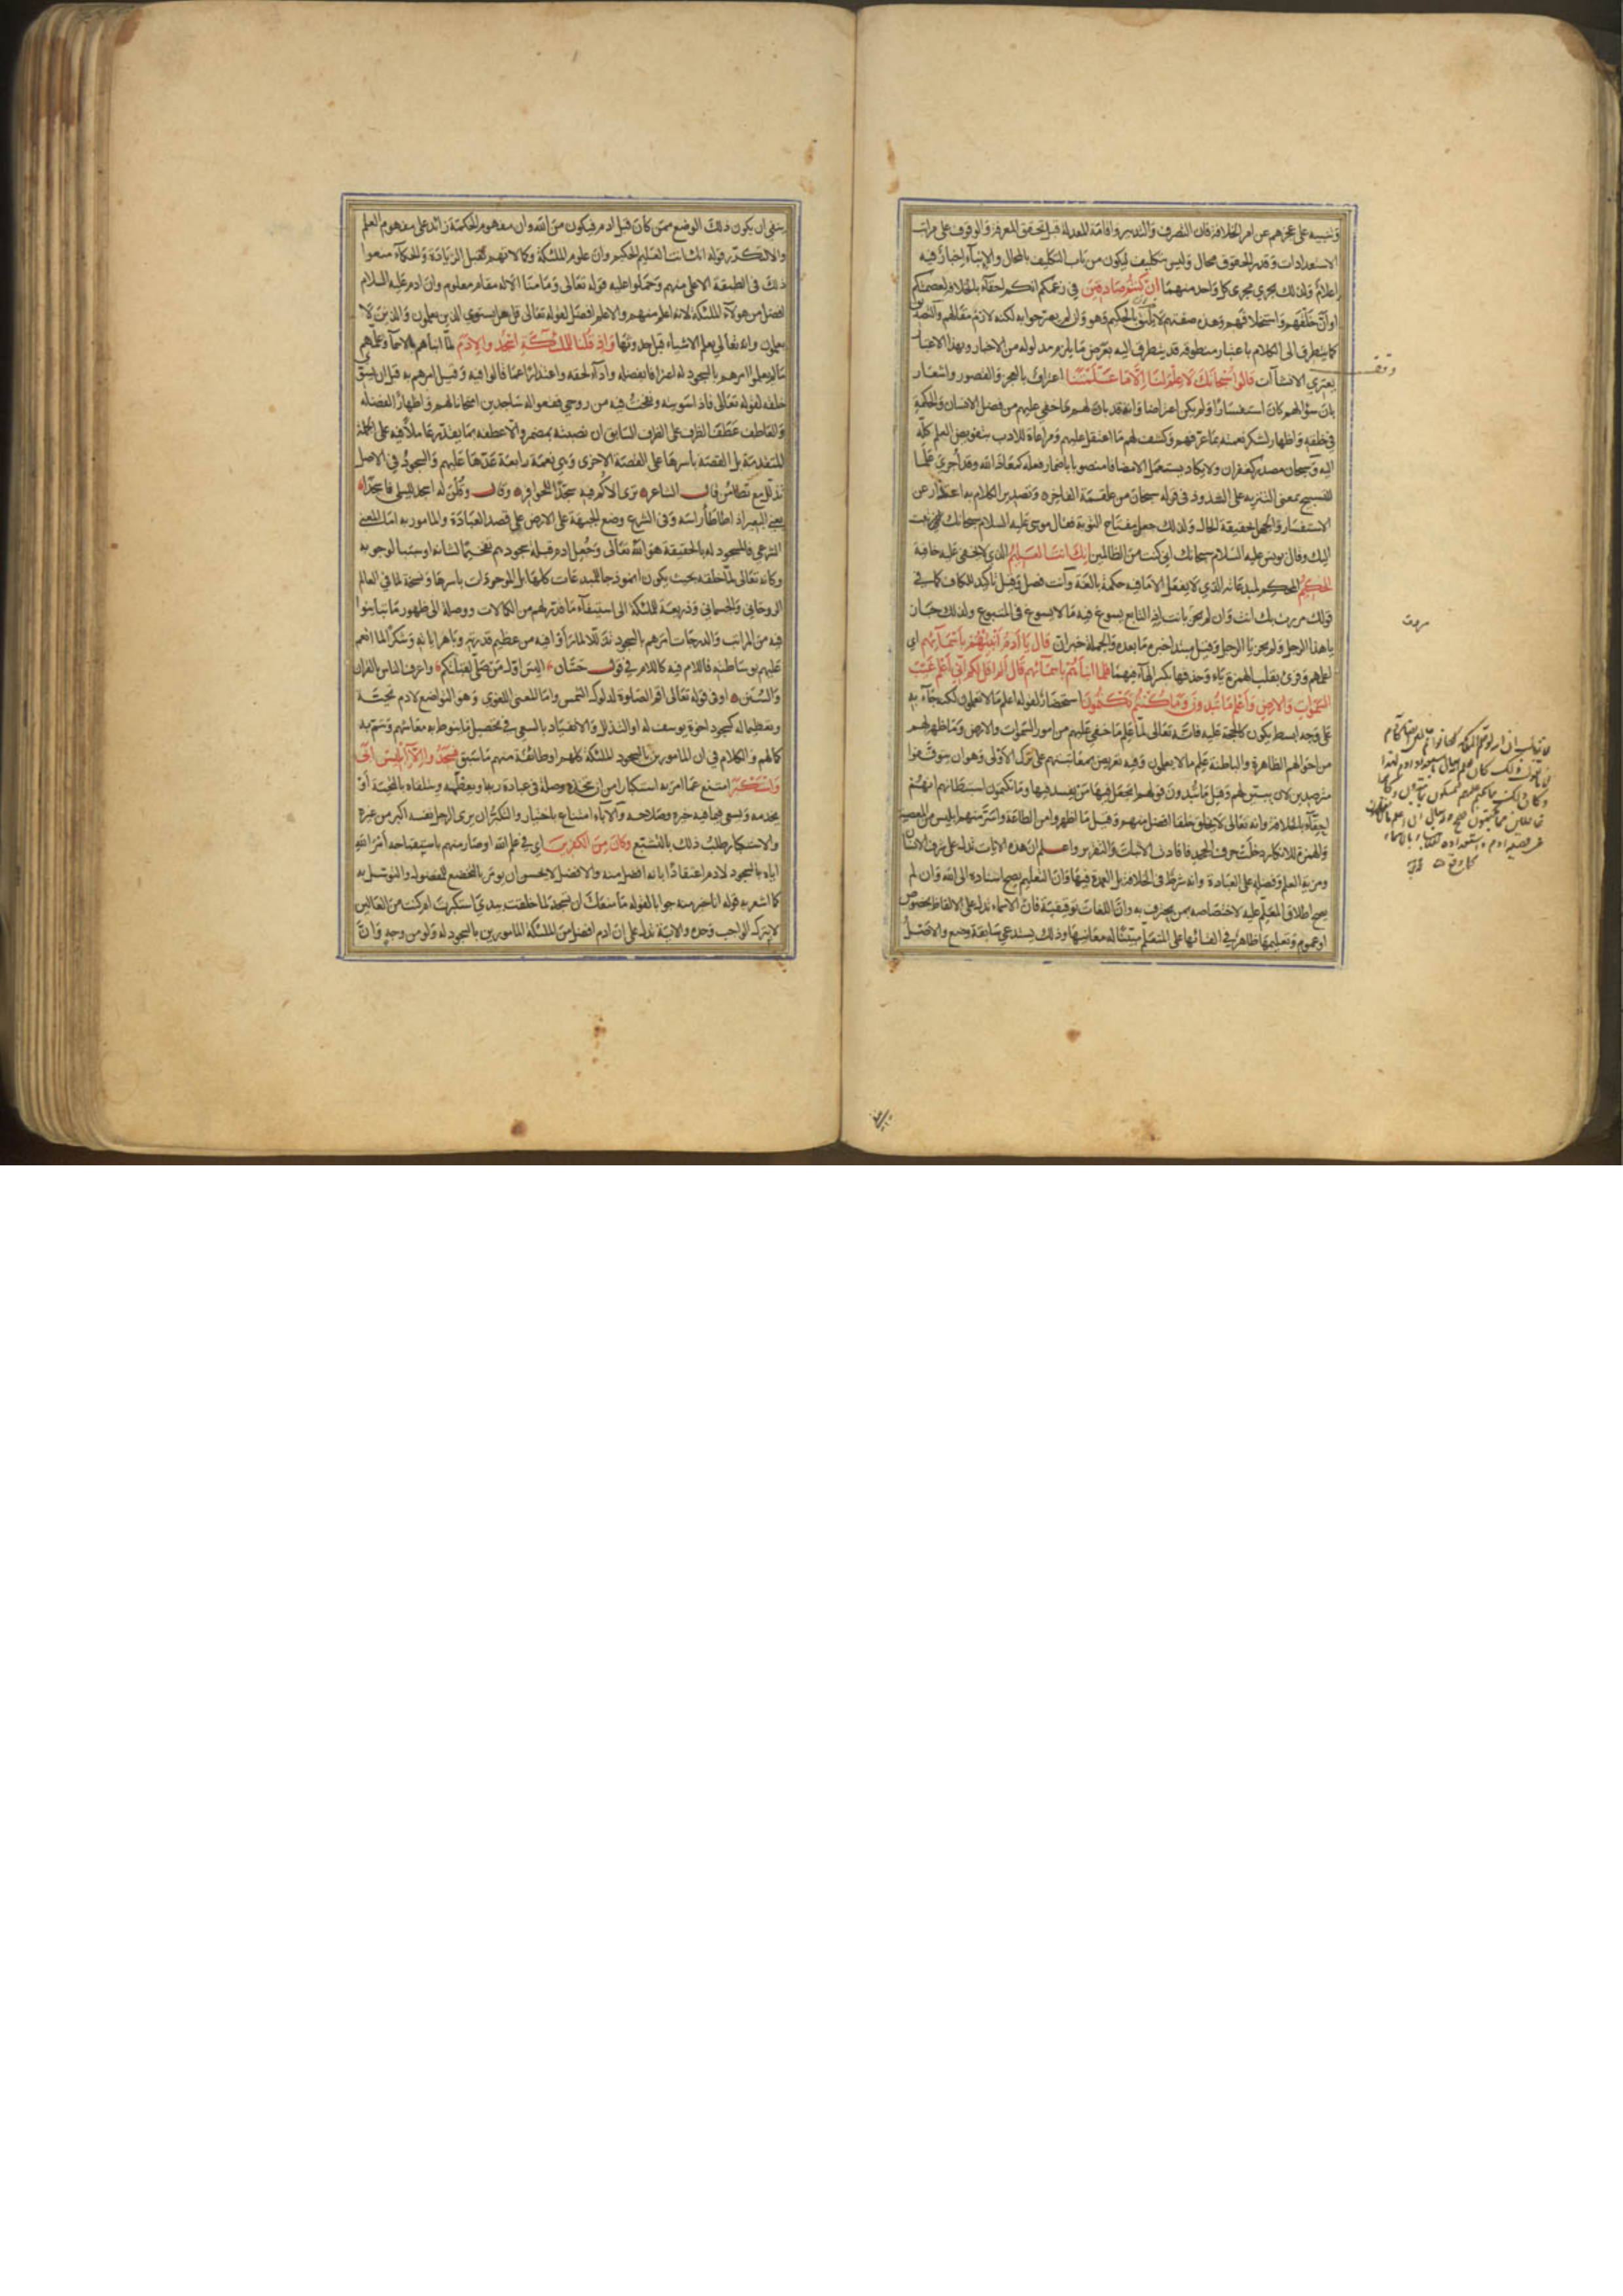 وتنبيه على عجزهم عن امر الخلافة فان التصرف والتدبير واقامة المعدلة قبل تحقق المعرفة والوقوف على مراتب
الاستعدادات وقدر الحقوق محال وليس بتكليف ليكون من باب التكليف بالمحال والانباء اخبار فيه
اعلام ولذلك يجري مجرى كل واحد منهما ان كنتم صادقين في زعمكم انكم احقاء بالخلافة لعصمتكم
او ان خلقهم واستخلافهم وهذه صفتهم لا يليق بالحكيم وهو وان لم يصرحوا به لكنه لازم مقالهم والتصديق
كما يتطرق الى الكلام باعتبار منطوقه قد يتطرق اليه بعرض ما يلزم مدلوله من الاخبار وبهذا الاعتبار
يعتري الانشاآت قالوا سبحانك لا علم لنا الا ما علمتنا اعتراف بالعجز والقصور واشعار
بان سؤالهم كان استفسارا ولم يكن اعتراضا وانه قد بان لهم ما خفي عليهم من فضل الانسان والحكمة
في خلقه واظهار لشكر نعمته بما عرفهم وكشف لهم ما اعتقل عليهم ومراعاة للادب بتفويض العلم كله
اليه وسبحان مصدر كغفران ولا يكاد يستعمل الا مضافا منصوبا باضمار فعله كمعاذ الله وقد اجري علما
للتسبيح بمعنى التنزيه على الشذوذ في قوله سبحان من علقمة الفاخره وتصدير الكلام به اعتذار عن
الاستفسار والجهل بحقيقة الحال ولذلك جعل مفتاح التوبة فقال موسى عليه السلام سبحانك تبت
اليك وقال يونس عليه السلام سبحانك اني كنت من الظالمين انك انت العليم الذي لا يخفى عليه خافية
الحكيم المحكم لمبدعاته الذي لا يفعل الا ما فيه حكمة بالغة وانت فصل وقيل تاكيد للكاف كما في
قولك مررت بك انت وان لم يجز بانت اذ التابع يسوغ فيه ما لا يسوغ في المتبوع ولذلك جاز
يا هذا الرجل ولم يجز يا الرجل وقيل مبتدا خبره ما بعده والجملة خبر ان قال يا ادم انبئهم باسمائهم اي
اعلمهم وقرئ بقلب الهمزة ياء وحذفها بكسر الهاء فيهما فلما انباهم باسمائهم قال الم اقل لكم اني اعلم غيب
السموات والارض واعلم ما تبدون وما كنتم تكتمون استحضار لقوله اعلم ما لا تعلمون لكنه جاء به
على وجه ابسط ليكون كالحجة عليه فانه تعالى لما علم ما خفي عليهم من امور السموات والارض وما ظهر لهم
من احوالهم الظاهرة والباطنة علم ما لا يعلمون وفيه تعريض بمعاتبتهم على ترك الاولى وهو ان يتوقفوا
مترصدين لان يبين لهم وقيل ما تبدون قولهم اتجعل فيها من يفسد فيها وما تكتمون استبطانهم انهم
احقاء بالخلافة وانه تعالى لا يخلق خلقا افضل منهم وقيل ما اظهروا من الطاعة واسر منهم ابليس من المعصية
والهمزة للانكار دخلت حرف الجحد فافادت الاثبات والتقرير واعلم ان هذه الايات تدل على شرف الانسان
ومزية العلم وفضله على العبادة وانه شرط في الخلافة بل العمدة فيها وان التعليم يصح اسناده الى الله وان لم
يصح اطلاق المعلم عليه لاختصاصه بمن يحترف به وان اللغات توقيفية فان الاسماء تدل على الالفاظ بخصوص
او عموم وتعليمها ظاهر في القائها على المتعلم مبينا له معانيها وذلك يستدعي سابقة وضع والاصل
ينفي ان يكون ذلك الوضع ممن كان قبل ادم فيكون من الله وان مفهوم الحكمة زائد على مفهوم العلم
والا لتكرر قوله انك انت العليم الحكيم وان علوم الملئكة وكمالاتهم تقبل الزيادة والحكماء منعوا
ذلك في الطبقة الاعلى منهم وحملوا عليه قوله تعالى وما منا الا له مقام معلوم وان ادم عليه السلام
افضل من هؤلاء الملئكة لانه اعلم منهم والاعلم افضل لقوله تعالى قل هل يستوي الذين يعلمون والذين لا
يعلمون وانه تعالى يعلم الاشياء قبل حدوثها واذ قلنا للملئكة اسجدوا لادم لما انباهم بالاسماء وعلمهم
ما لم يعلموا امرهم بالسجود له اعترافا بفضله واداء لحقه واعتذارا عما قالوا فيه وقيل امرهم به قبل ان يسوي
خلقه لقوله تعالى فاذا سويته ونفخت فيه من روحي فقعوا له ساجدين امتحانا لهم واظهارا لفضله
والعاطف عطف الظرف على الظرف السابق ان نصبته بمضمر والا عطفه بما يقدر عاملا فيه على الجملة
المتقدمة بل القصة باسرها على القصة الاخرى وهي نعمة رابعة عدها عليهم والسجود في الاصل
تذلل مع تطامن قال الشاعر ترى الاكم فيه سجدا للحوافر وقال وقلن له اسجد لليلى فاسجدا
يعني البعير اذا طاطا راسه وفي الشرع وضع الجبهة على الارض على قصد العبادة والمامور به اما المعنى
الشرعي فالمسجود له بالحقيقة هو الله تعالى وجعل ادم قبلة سجودهم تفخيما لشانه او سببا لوجوبه
وكانه تعالى لما خلقه بحيث يكون انموذجا للمبدعات كلها بل الموجودات باسرها ونسخة لما في العالم
الروحاني والجسماني وذريعة للملئكة الى استيفاء ما قدر لهم من الكمالات ووصلة الى ظهور ما تباينوا
فيه من المراتب والدرجات امرهم بالسجود تذللا لما راوا فيه من عظيم قدرته وباهر اياته وشكرا لما انعم
عليهم بوساطته فاللام فيه كاللام في قول حسان اليس اول من صلى لقبلتكم واعرف الناس بالقران
والسنن او في قوله تعالى اقم الصلوة لدلوك الشمس واما المعنى اللغوي وهو التواضع لادم تحية
وتعظيما له كسجود اخوة يوسف له او التذلل والانقياد بالسعي في تحصيل ما ينوط به معاشهم ويتم به
كمالهم والكلام في ان المامورين بالسجود الملئكة كلهم او طائفة منهم ما سبق فسجدوا الا ابليس ابى
واستكبر امتنع عما امر به استكبارا من ان يتخذه وصلة في عبادة ربه او يعظمه ويتلقاه بالتحية او
يخدمه ويسعى فيما فيه خيره وصلاحه والاباء امتناع باختيار والتكبر ان يرى الرجل نفسه اكبر من غيره
والاستكبار طلب ذلك بالتشبع وكان من الكفرين اي في علم الله او صار منهم باستقباحه امر الله
اياه بالسجود لادم اعتقادا بانه افضل منه والافضل لا يحسن ان يؤمر بالتخضع للمفضول والتوسل به
كما اشعر به قوله انا خير منه جوابا لقوله ما منعك ان تسجد لما خلقت بيدي استكبرت ام كنت من العالين
لا بترك الواجب وحده والاية تدل على ان ادم افضل من الملئكة المامورين بالسجود له ولو من وجه وان